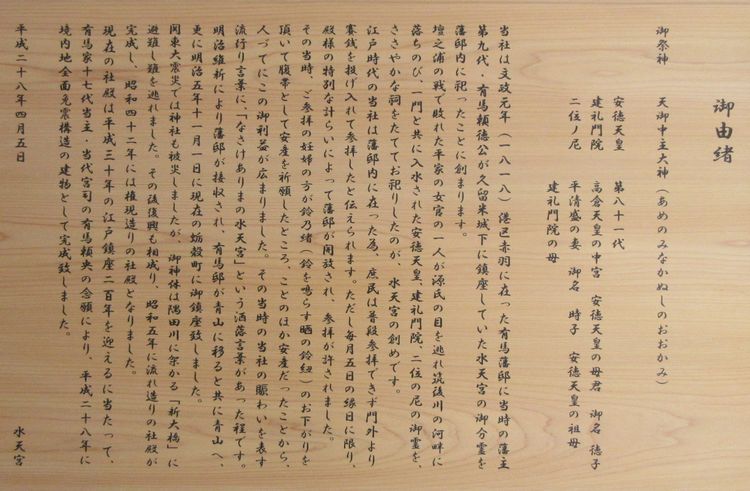 御由緒
御祭神　天御中主大神（あめのみなかぬしのおおかみ）
安徳天皇　第八十一代
建礼門院　高倉天皇の中宮　安徳天皇の母君　御名　徳子
二位ノ尼　平清盛の妻　御名　時子　安徳天皇の祖母
建礼門院の母
当社は文政元年（一八一八）港区赤羽に在った有馬藩邸に当時の藩主
第九代・有馬頼徳公が久留米城下に鎮座していた水天宮の御分霊を
藩邸内に祀ったことに創まります。
壇之浦の戦で敗れた平家の女官の一人が源氏の目を逃れ筑後川の河畔に
落ちのび、一門と共に入水された安徳天皇、建礼門院、二位の尼の御霊を、
ささやかな祠をたててお祀りしたのが、水天宮の創めです。
江戸時代の当社は藩邸内に在った為、庶民は普段参拝できず門外より
賽銭を投げ入れて参拝したと伝えられます。ただし毎月五日の縁日に限り、
殿様の特別な計らいによって藩邸が開放され、参拝が許されました。
その当時、ご参拝の妊婦の方が鈴乃緒（鈴を鳴らす晒の鈴紐）のお下がりを
頂いて腹帯として安産を祈願したところ、ことのほか安産だったことから、
人づてにこの御利益が広まりました。その当時の当社の賑わいを表す
流行り言葉に、「なさけありまの水天宮」という洒落言葉があった程です。
明治維新により藩邸が接収され、有馬邸が青山に移ると共に青山へ、
更に明治五年十一月一日に現在の蛎殻町に御鎮座致しました。
関東大震災では神社も被災しましたが、御神体は隅田川に架かる「新大橋」に
避難し難を逃れました。その後復興も相成り、昭和五年に流れ造りの社殿が
完成し、昭和四十二年には権現造りの社殿となりました。
現在の社殿は平成三十年の江戸鎮座二百年を迎えるに当たって、
有馬家十七代当主・当代宮司の有馬頼央の念願により、平成二十八年に
境内地全面免震構造の建物として完成致しました。
平成二十八年四月五日　水天宮